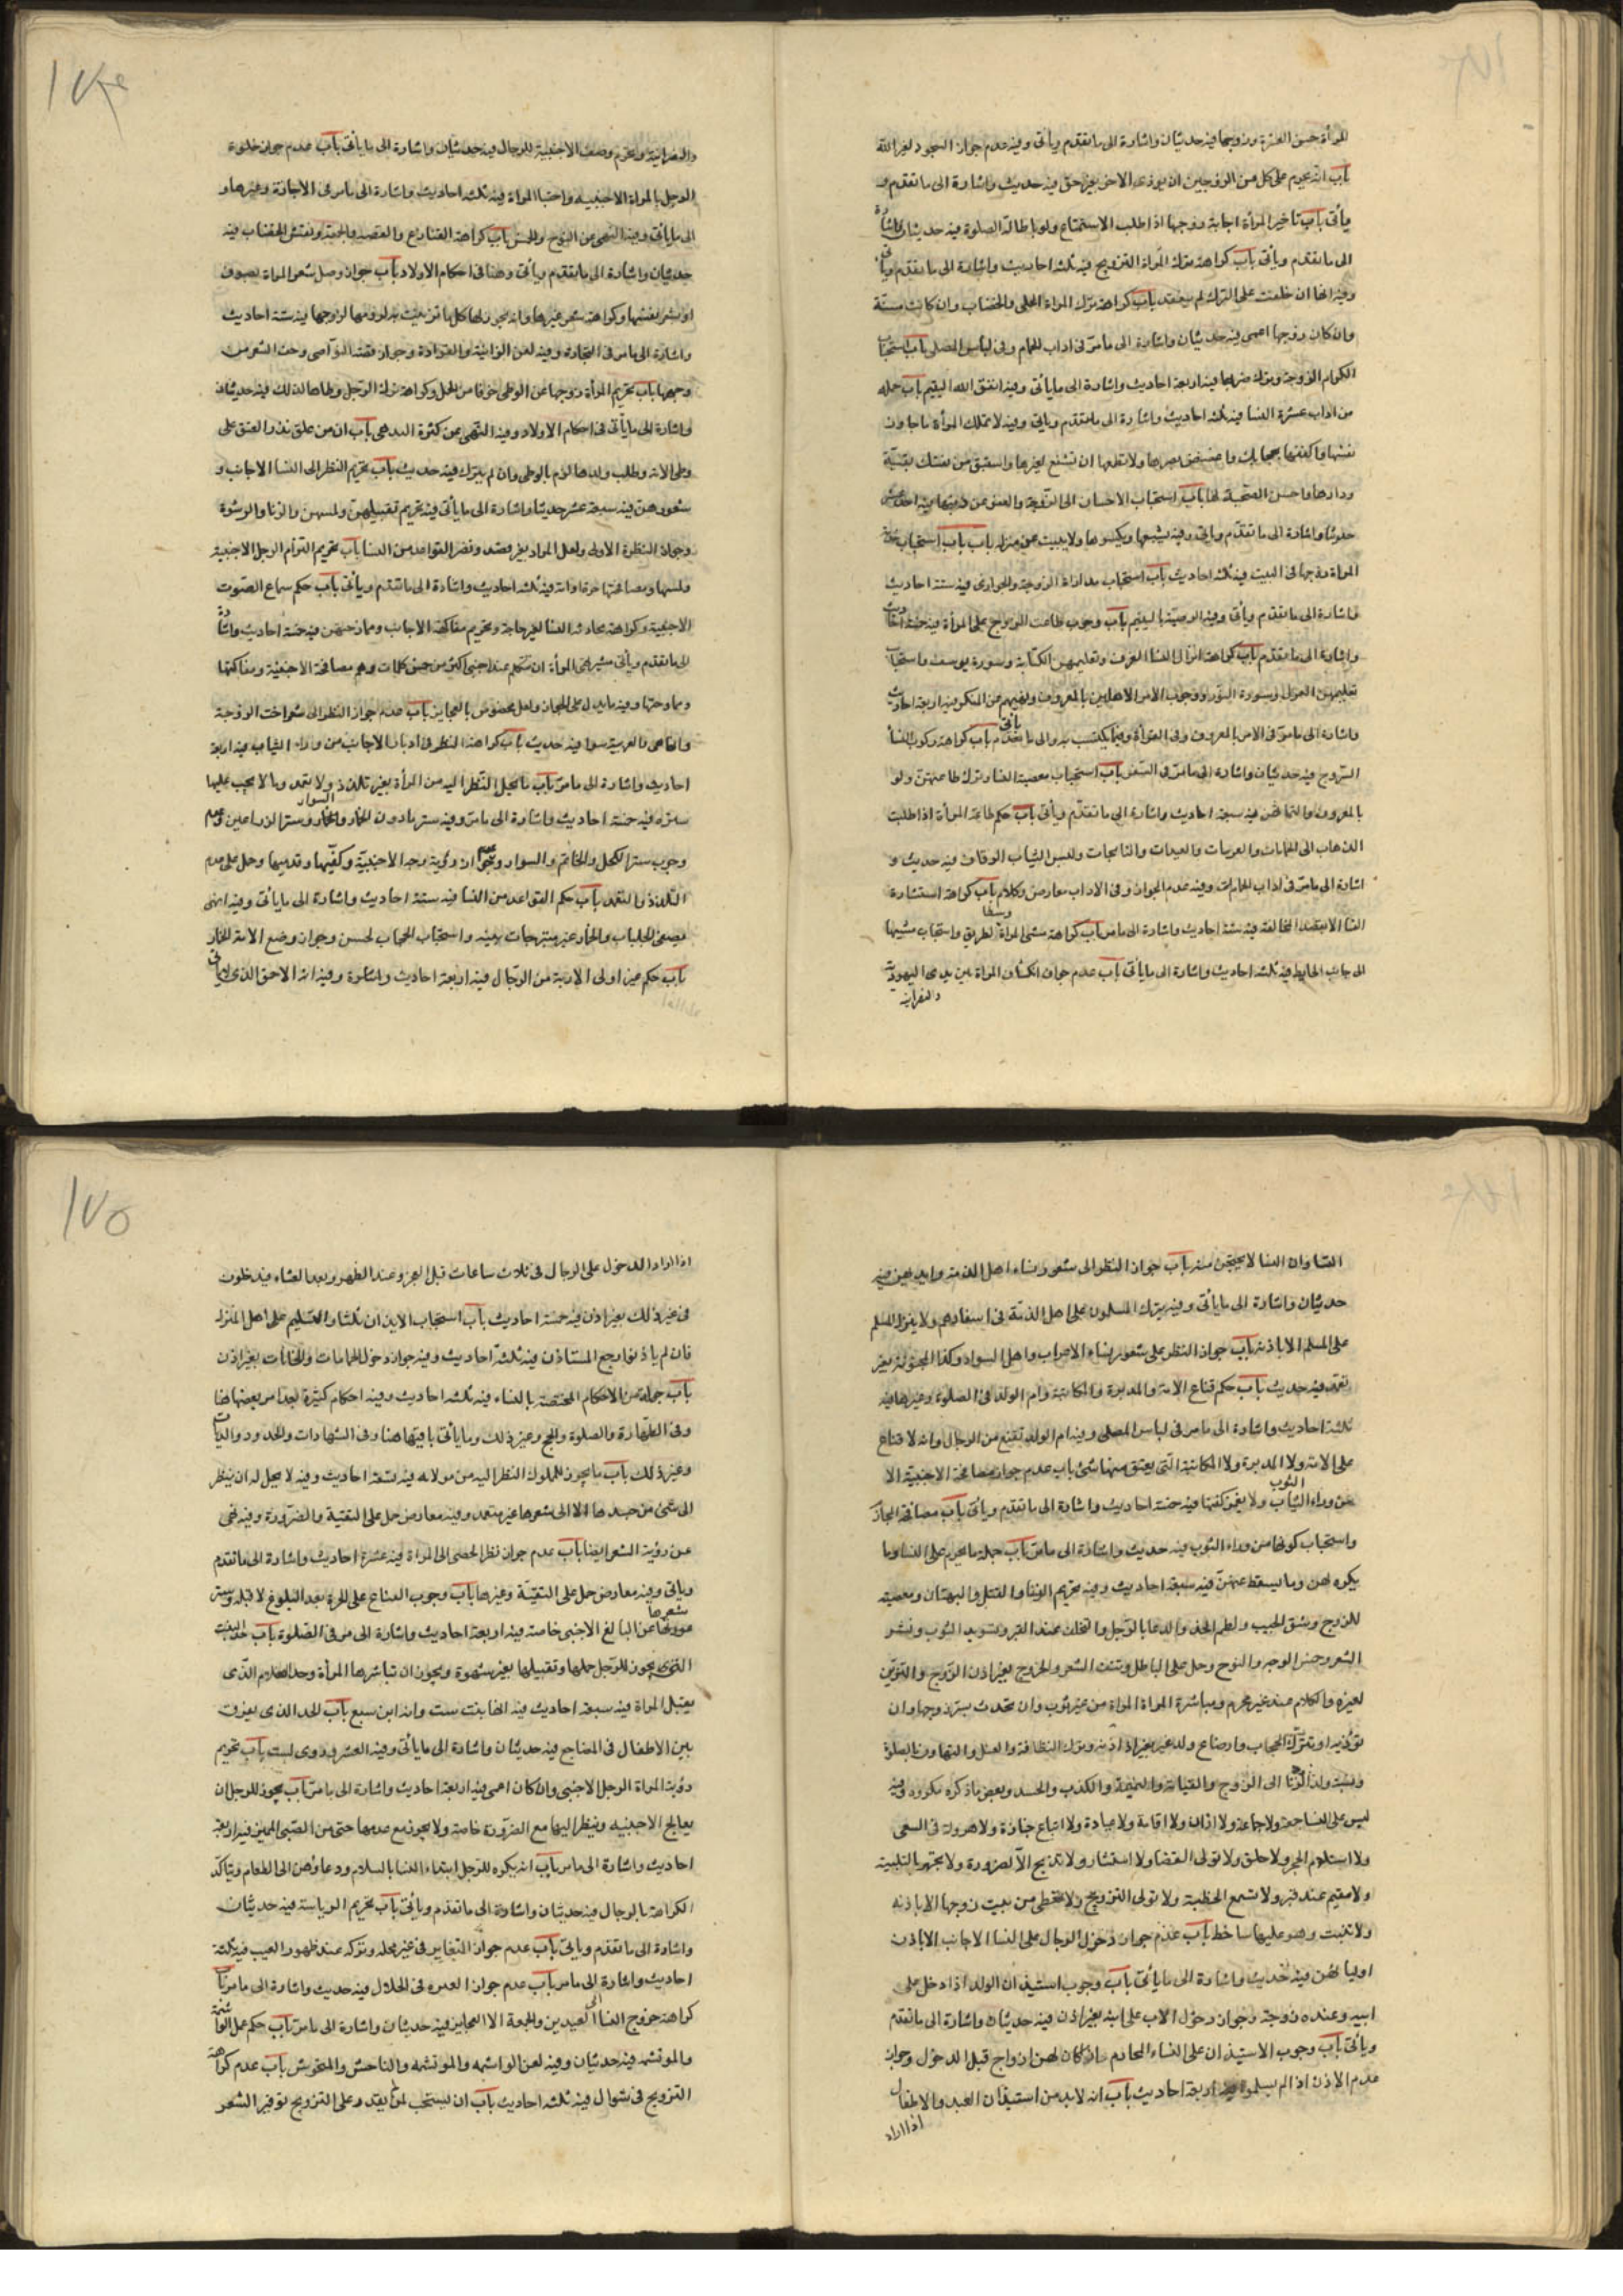 المرأة حسن العشرة وزوجها فيه حديثان واشارة الى ما تقدم وياتى وفيه عدم جواز السجود لغير الله
باب انه يحرم على كل من الزوجين ان يوذى الاخر بغير حق فيه حديث واشارة الى ما تقدم و
ياتى باب تاخير المرأة اجابة زوجها اذا طلب الاستمتاع ولو باطالة الصلوة فيه حديثان واشارة
الى ما تقدم وياتى باب كراهة ترك المراة التزويج فيه ثلثه احاديث واشارة الى ما تقدم وياتى
وفيه انها ان حلفت على الترك لم ينعقد باب كراهة ترك المراة الحلى والخضاب وان كانت مسنة
وان كان زوجها اعمى فيه حديثان واشارة الى ما مر فى اداب الحمام وفى لباس المصلى باب استحباب
اكرام الزوجة وترك ضربها فيه اربعة احاديث واشارة الى ما ياتى وفيه اتق الله اليتيم باب جمله
من اداب عشرة النسا فيه ثلثه احاديث واشارة الى ما تقدم وياتى وفيه لا تملك المرأة ما جاوز
نفسها واكففها بحجابك واغضض بصرها ولا تطمعها ان تشفع لغيرها واستبق من نفسك بقية
ودارها واحسن الصحبة لها باب استحباب الاحسان الى الزوجة والعفو عن ذنبها فيه احد عشر
حديثا واشارة الى ما تقدم وياتى وفيه يشبعها ويكسوها ولا يبيت عن منزله باب استحباب خدمة
المراة زوجها فى البيت فيه ثلثه احاديث باب استحباب مداراة الزوجة والجوارى فيه ستة احاديث
واشارة الى ما تقدم وياتى وفيه الوصية باليتيم باب وجوب طاعت الزوج على المرأة فيه خمسة احاديث
واشارة الى ما تقدم باب كراهة انزال النسا الغرف وتعليمهن الكتابة وسورة يوسف واستحباب
تعليمهن الغزل وسورة النور ووجوب الامر الاهلين بالمعروف ونهيهم عن المنكر فيه اربعة احاديث
واشارة الى ما مر فى الامر بالمعروف وفى القرأة وفيما يكتسب به والى ما ياتى باب كراهة ركوب النسأ
السروج فيه حديثان واشارة الى ما مر فى السفر باب استحباب معصية النسا وترك طاعتهن ولو
بالمعروف وائتمانهن فيه سبعة احاديث واشارة الى ما تقدم وياتى باب حكم طاعة المرأة اذا طلبت
الذهاب الى الحمامات والعرسات والعيدات والنايحات ولبس الثياب الرقاق فيه حديث و
اشارة الى ما مر فى اداب الحمام وفيه عدم الجواز وفى الاداب معارض وكلام باب كراهة استشارة
النسا الا بقصد المخالفة فيه ستة احاديث واشارة الى ما مر باب كراهة مشى المراة وسط الطريق واستحباب مشيها
الى جانب الحايط فيه ثلثه احاديث واشارة الى ما ياتى باب عدم جواز انكشاف المراة بين يدى اليهودية
والنصرانية
١٧٤
والنصرانية وتحريم وصف الاجنبية للرجال فيه حديثان واشارة الى ما ياتى باب عدم جواز خلوة
الرجل بالمراة الاجنبيه واختبا المراة فيه ثلثه احاديث واشارة الى ما مر فى الاجارة وغيرها و
الى ما ياتى وفيه النهى عن النوح والخمش باب كراهة القنازع والقصة والجمة ونقش الخضاب فيه
حديثان واشارة الى ما تقدم وياتى وهنا فى احكام الاولاد باب جواز وصل شعر المراة بصوف
او بشعر نفسها وكراهة شعر غيرها وانه يجوز لها كل ما تزينت به لزوجها فيه ستة احاديث
واشارة الى ما مر فى التجارة وفيه لعن الزانية والقوادة وجواز قصة النواصى وحف الشعر من
وجهها باب تحريم المرأة زوجها عن الوطى خوفا من الحمل وكراهة ترك الرجل وطاها لذلك فيه حديثان
واشارة الى ما ياتى فى احكام الاولاد وفيه النهى عن كثرة البدهى باب ان من علق نذر العتق على
وطى الامة وطلب ولدها لزم بالوطى وان لم ينزل فيه حديث باب تحريم النظر الى النسا الاجانب و
شعورهن فيه سبعة عشر حديثا واشارة الى ما ياتى فيه تحريم تقبيلهن ولمسهن والزنا والرشوة
وجواز النظرة الاولى ولعل المراد بغير قصد وقصر القواعد من النسا باب تحريم التزام الرجل الاجنبية
ولمسها ومصافحتها حرة او امة فيه ثلثه احاديث واشارة الى ما تقدم وياتى باب حكم سماع الصوت
الاجنبية وكراهة محادثه النسا لغير حاجة وتحريم مفاكهة الاجانب وممازحتهن فيه خمسة احاديث واشارة
الى ما تقدم وياتى فيه نهى المرأة ان تتكلم عند اجنبى اكثر من خمس كلمات وهم مصافحة الاجنبية ومفاكهتها
وممازحتها وفيه ما يدل على الجواز ولعل مخصوص بالعجايز باب عدم جواز النظر الى شعر اخت الزوجة
وانها هى والغريبة سوا فيه حديث باب كراهة النظر فى ادبار الاجانب من وراء الثياب فيه اربعة
احاديث واشارة الى ما مر باب ما يحل النظر اليه من المرأة بغير تلذذ ولا تعمد وما لا يجب عليها
ستره فيه خمسة احاديث واشارة الى ما مر وفيه ستر ما دون الخمار والسوار وستر الذراعين وعدم
وجوب ستر الكحل والخاتم والسوار ونحوه ان رؤية وجه الاجنبية وكفيها وقدميها وحمل على عدم
التلذذ والتعمد باب حكم القواعد من النسا فيه ستة احاديث واشارة الى ما ياتى وفيه انهن
يضعن الجلباب والخمار غير متبرجات بزينه واستحباب الحجاب لحسن وجواز وضع الامة الخمار
باب حكم غير اولى الاربة من الرجال فيه اربعة احاديث واشارة وفيه انه الاحمق الذى لا ياتى
النسا وان النسا لا يحتجبن منه باب جواز النظر الى شعور نساء اهل الذمة وايديهن فيه
حديثان واشارة الى ما ياتى وفيه ينزل المسلمون على اهل الذمة فى اسفارهم ولا ينزل المسلم
على المسلم الا باذنه باب جواز النظر على شعور نساء الاعراب واهل السواد وكذا المجنونة بغير
تعمد فيه حديث باب حكم قناع الامة والمدبرة والمكاتبة وام الولد فى الصلوة وغيرها فيه
ثلثة احاديث واشارة الى ما مر فى لباس المصلى وفيه ام الولد تقنع من الرجال وانه لا قناع
على الامة ولا المدبرة ولا المكاتبة التى يعتق منها شئ باب عدم جواز مصافحة الاجنبية الا
من وراء الثوب ولا يغمز كفها فيه خمسة احاديث واشارة الى ما تقدم وياتى باب مصافحة المحارم
واستحباب كونها من وراء الثوب فيه حديث واشارة الى ما مر باب جملة ما يحرم على النسا وما
يكره لهن وما يسقط عنهن فيه سبعة احاديث وفيه تحريم الزنا والقتل والبهتان ومعصية
للزوج وشق الجيب ولطم الخد والدعا بالويل والتخلف عند القبر وتسويد الثوب ونشر
الشعر وخمش الوجه والنوح وحمل على الباطل ونتف الشعر والخروج بغير اذن الزوج والتزين
لغيره والكلام عند غير محرم ومباشرة المراة المراة من غير ثوب وان تحدث بسر زوجها وان
تؤذيه او تترك الحجاب وارضاع ولد غيره بغير اذنه وترك النظافة والغسل والتهاون بالصلوة
ونسبة ولد الزنا الى الزوج والقيانة والنميمة والكذب والحسد وبعض ما ذكره مكروه وفيه
ليس على النسا جمعة ولا جماعة ولا اذان ولا اقامة ولا عيادة ولا اتباع جنازة ولا هرولة فى السعى
ولا استلام الحجر ولا حلق ولا تولى القضا ولا استشار ولا تذبح الا لضرورة ولا تجهر بالتلبية
ولا تقيم عند قبر ولا تسمع الخطبة ولا تولى التزويج ولا تعطى من بيت زوجها الا باذنه
ولا تبيت وهو عليها ساخط باب عدم جواز دخول الرجال على النسا الاجانب الا باذن
اوليائهن فيه حديث واشارة الى ما ياتى باب وجوب استيذان الولد اذا دخل على
ابيه وعنده زوجة وجواز دخول الاب على ابنه بغير اذن فيه حديثان واشارة الى ما تقدم
وياتى باب وجوب الاستيذان على النساء المحارم اذا كان لهن ازواج قبل الدخول وجواز
عدم الاذن اذا لم يسلموا فيه اربعة احاديث باب انه لا بد من استيذان العبد والاطفال
اذا اراد
١٧٥
اذا اراد الدخول على الرجال فى ثلاث ساعات قبل الفجر وعند الظهر وبعد العشاء فيدخلون
فى غير ذلك بغير اذن فيه خمسة احاديث باب استحباب الايذان ثلثا والتسليم على اهل المنزل
فان لم ياذنوا رجع المستاذن فيه ثلثة احاديث وفيه جواز دخول الحمامات والخانات بغير اذن
باب جملة من الاحكام المختصة بالنساء فيه ثلثه احاديث وفيه احكام كثيرة لجدا مر بعضها هنا
وفى الطهارة والصلوة والحج وغير ذلك وما ياتى باقيها هنا وفى الشهادات والحدود والديات
وغير ذلك باب ما يجوز للمملوك النظر اليه من مولاته فيه تسعة احاديث وفيه لا يحل له ان ينظر
الى شئ من جسدها الا الى شعرها غير متعمد وفيه معارض حمل على التقية والضرورة وفيه نهى
عن رؤية الشعر ايضا باب عدم جواز نظر الخصى الى المراة فيه عشرة احاديث واشارة الى ما تقدم
وياتى وفيه معارض حمل على التقية وغيرها باب وجوب القناع على الحرة بعد البلوغ لا قبله وستر
شعرها عن البالغ الاجنبى خاصة فيه اربعة احاديث واشارة الى مر فى الصلوة باب حد البنت
التى يجوز للرجل حملها وتقبيلها بغير شهوة ويجوز ان تباشرها المرأة وحد الغلام الذى
يقبل المراة فيه سبعة احاديث فيه انها بنت ست وانه ابن سبع باب الحد الذى يفرق
بين الاطفال فى المضاجع فيه حديثان واشارة الى ما ياتى وفيه العشر وروى لست باب تحريم
رؤية المراة الرجل الاجنبى وان كان اعمى فيه اربعة احاديث واشارة الى ما مر باب يجوز للرجل ان
يعالج الاجنبيه وينظر اليها مع الضرورة خاصة ولا يجوز مع عدمها حتى من الصبى المميز فيه اربعة
احاديث واشارة الى ما مر باب انه يكره للرجل ابتداء النسا بالسلام ودعاؤهن الى الطعام ويتاكد
الكراهة بالرجال فيه حديثان واشارة الى ما تقدم وياتى باب تحريم الرياسة فيه حديثان
واشارة الى ما تقدم وياتى باب عدم جواز التغاير فى غير محله وتركه عند ظهور العيب فيه ثلثة
احاديث واشارة الى ما مر باب عدم جواز الغيره فى الحلال فيه حديث واشارة الى ما مر باب
كراهة خروج النسا الى العيدين والجمعة الا العجايز فيه حديثان واشارة الى ما مر باب حكم عمل الواشمة
والموتشمه فيه حديثان وفيه لعن الواشمه والموتشمه والناجش والمنجوش باب عدم كراهة
التزويج فى شوال فيه ثلثه احاديث باب ان يستحب لمن لم يقدر على التزويج توفير الشعر